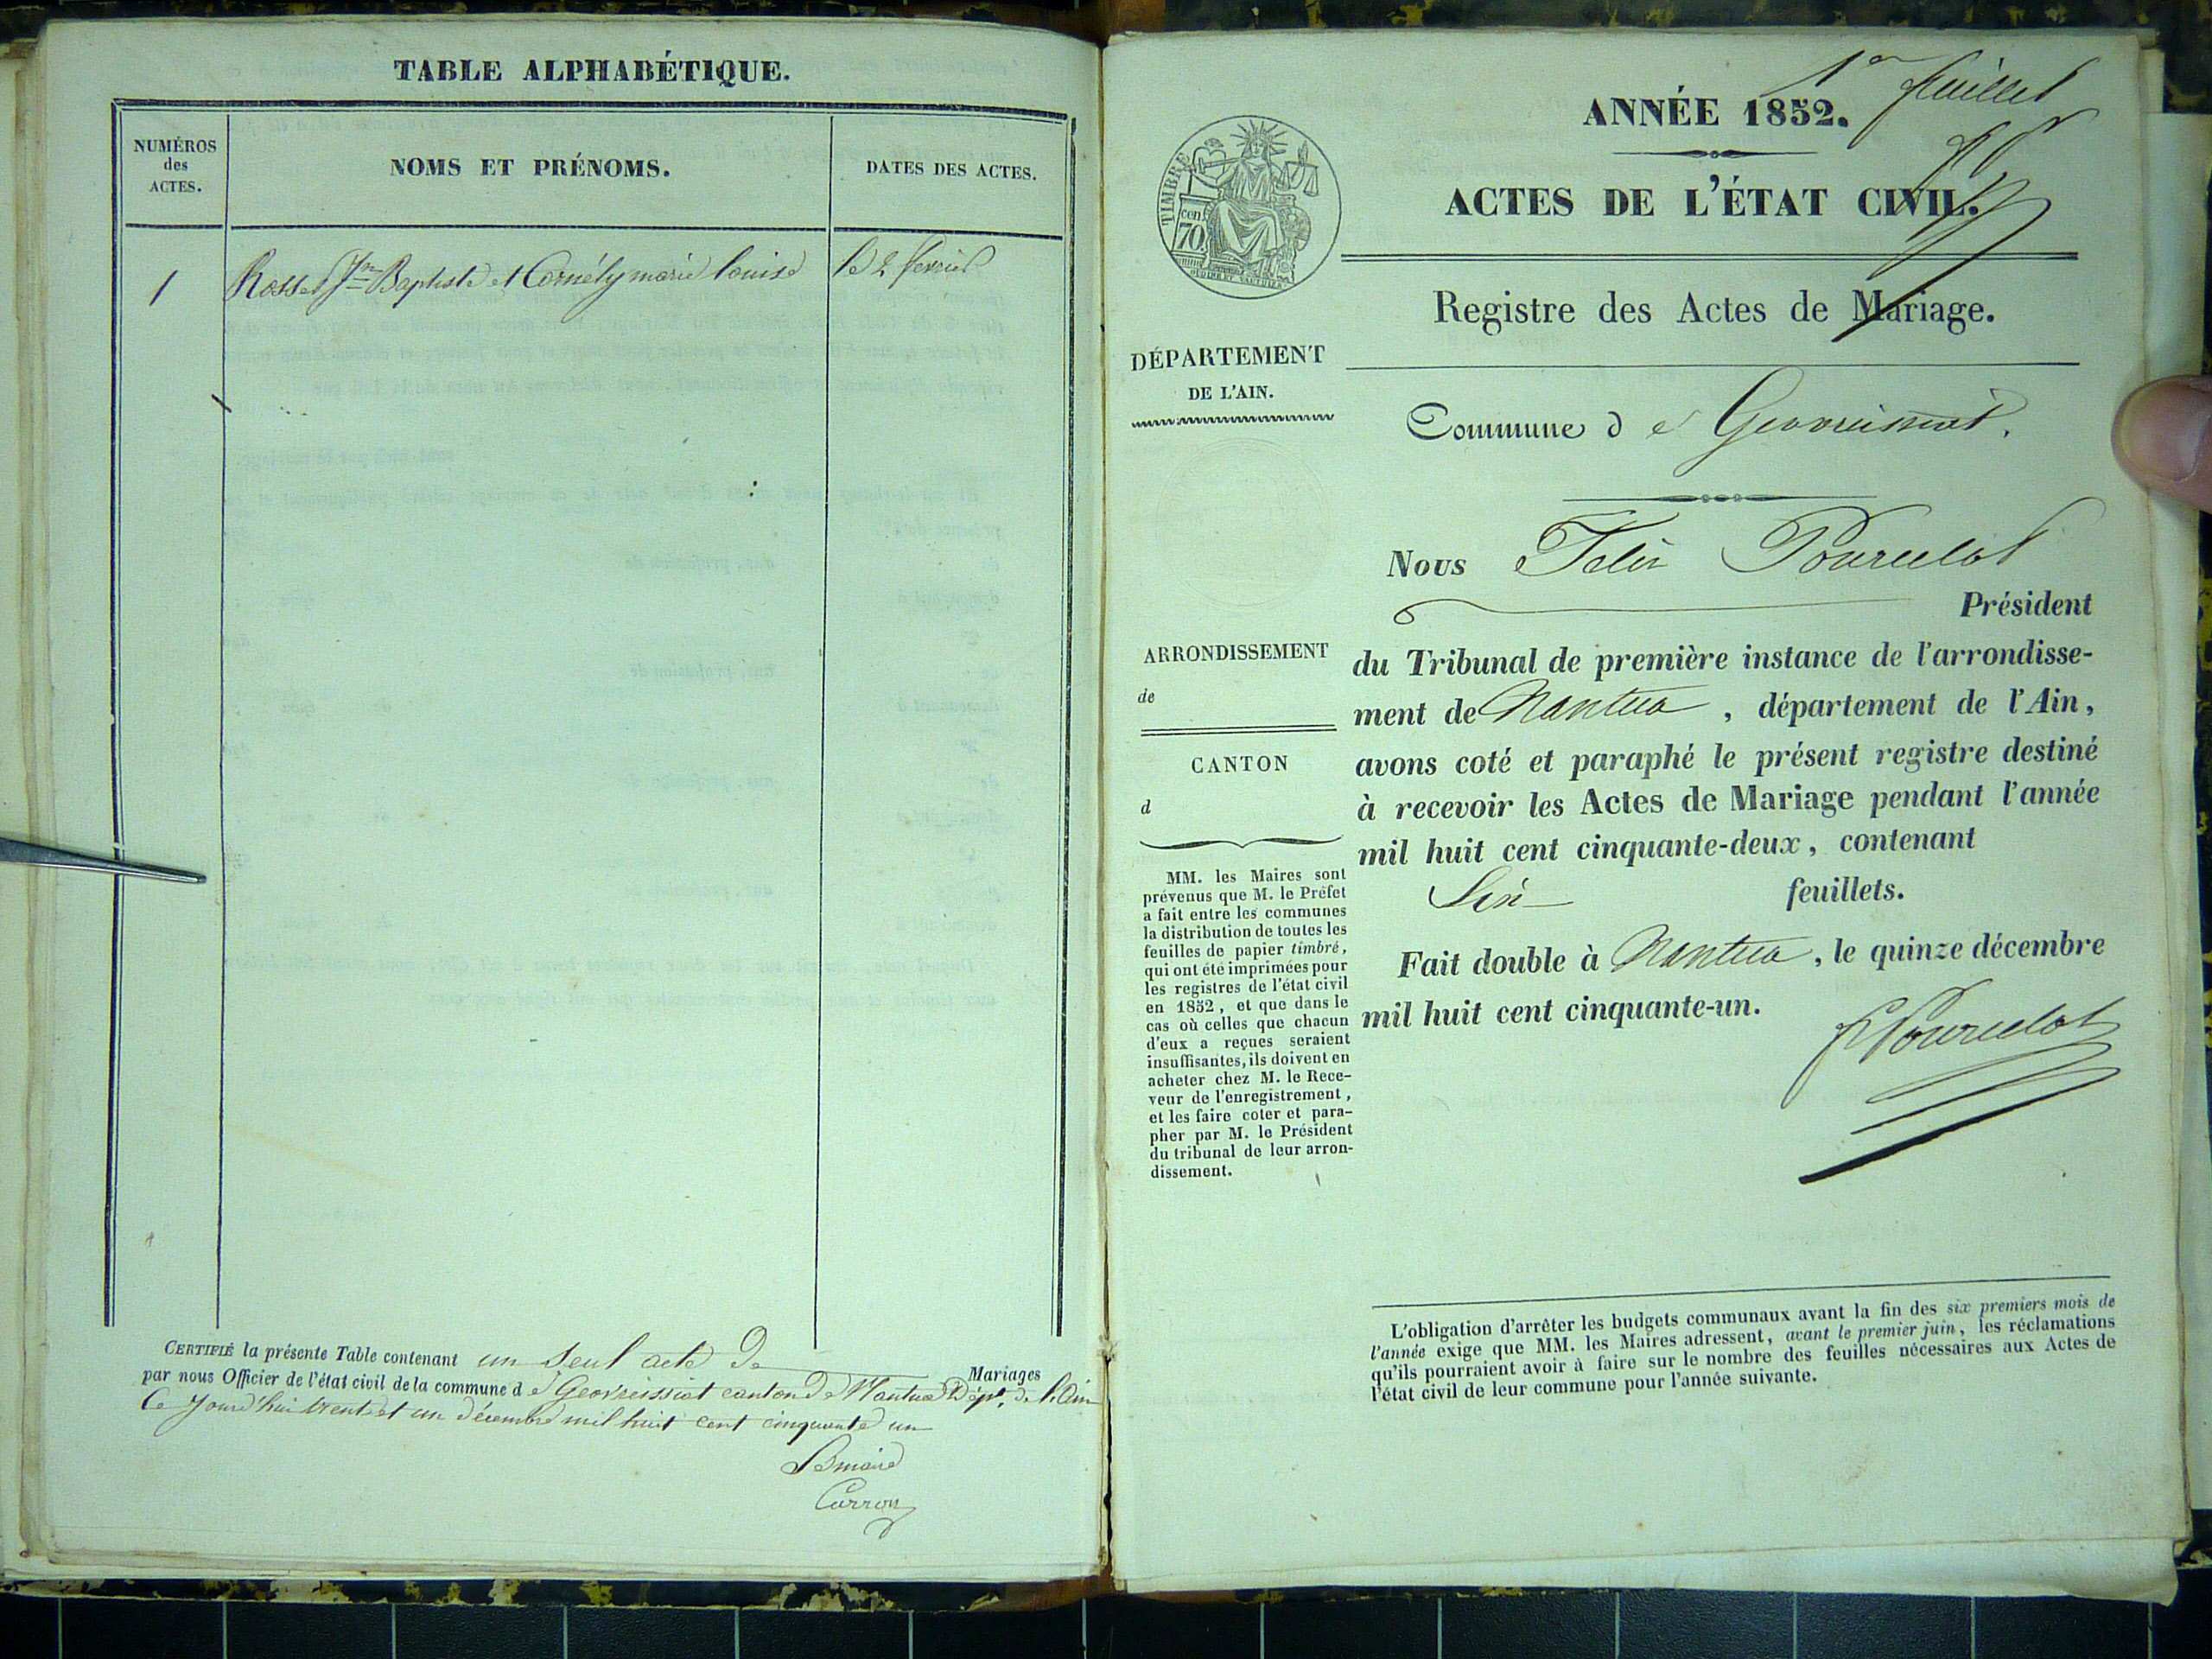 TABLE ALPHABÉTIQUE.
NUMÉROS
des
ACTES.
NOMS ET PRÉNOMS.
DATES DES ACTES.
1 Rosset Jn Baptiste et Cornély marie louise le 2 fevrier
CERTIFIÉ la présente Table contenant un seul acte De Mariages
par nous Officier de l'état civil de la commune d e Geovreissiat canton De Nantua Dépt. de l'Ain
Ce jourd'hui trent et un décembre mil huit cent cinquante un
Le maire
Carron
1er feuillet
ANNÉE 1852.
ACTES DE L'ÉTAT CIVIL.
TIMBRE
cen
70.
Registre des Actes de Mariage.
DÉPARTEMENT
DE L'AIN.
Commune d e Geovreissiat.
Nous Félix Pourcelot
Président
du Tribunal de première instance de l'arrondisse-
ment de Nantua, département de l'Ain,
avons coté et paraphé le présent registre destiné
à recevoir les Actes de Mariage pendant l'année
mil huit cent cinquante-deux, contenant
Six feuillets.
Fait double à Nantua, le quinze décembre
mil huit cent cinquante-un.
F Pourcelot
ARRONDISSEMENT
de
CANTON
d
MM. les Maires sont
prévenus que M. le Préfet
a fait entre les communes
la distribution de toutes les
feuilles de papier timbré,
qui ont été imprimées pour
les registres de l'état civil
en 1852, et que dans le
cas où celles que chacun
d'eux a reçues seraient
insuffisantes, ils doivent en
acheter chez M. le Rece-
veur de l'enregistrement,
et les faire coter et para-
pher par M. le Président
du tribunal de leur arron-
dissement.
L'obligation d'arrêter les budgets communaux avant la fin des six premiers mois de
l'année exige que MM. les Maires adressent, avant le premier juin, les réclamations
qu'ils pourraient avoir à faire sur le nombre des feuilles nécessaires aux Actes de
l'état civil de leur commune pour l'année suivante.